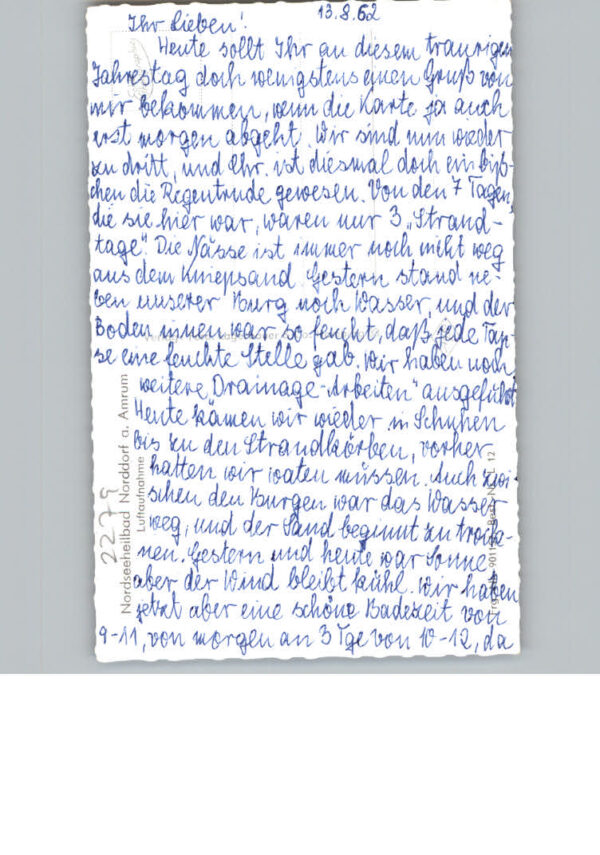 13.8.62
Ihr Lieben!
Heute sollt Ihr an diesem traurigen
Jahrestag doch wenigstens einen Gruß von
mir bekommen, wenn die Karte ja auch
erst morgen abgeht. Wir sind nun wieder
zu dritt, und Chr. ist diesmal doch ein biß-
chen die Regentrude gewesen. Von den 7 Tagen,
die sie hier war, waren nur 3 „Strand-
tage". Die Nässe ist immer noch nicht weg
aus dem Kniepsand. Gestern stand ne-
ben unserer Burg noch Wasser, und der
Boden innen war so feucht, daß jede Tap-
se eine feuchte Stelle gab. Wir haben noch
weitere „Drainage-Arbeiten" ausgeführt.
Heute kamen wir wieder in Schuhen
bis zu den Strandkörben, vorher
hatten wir waten müssen. Auch zwi-
schen den Burgen war das Wasser
weg, und der Sand beginnt zu trock-
nen. Gestern und heute war Sonne
aber der Wind bleibt kühl. Wir haben
jetzt aber eine schöne Badezeit von
9-11, von morgen an 3 Tge von 10-12, da
Nordseeheilbad Norddorf a. Amrum
Luftaufnahme
2279